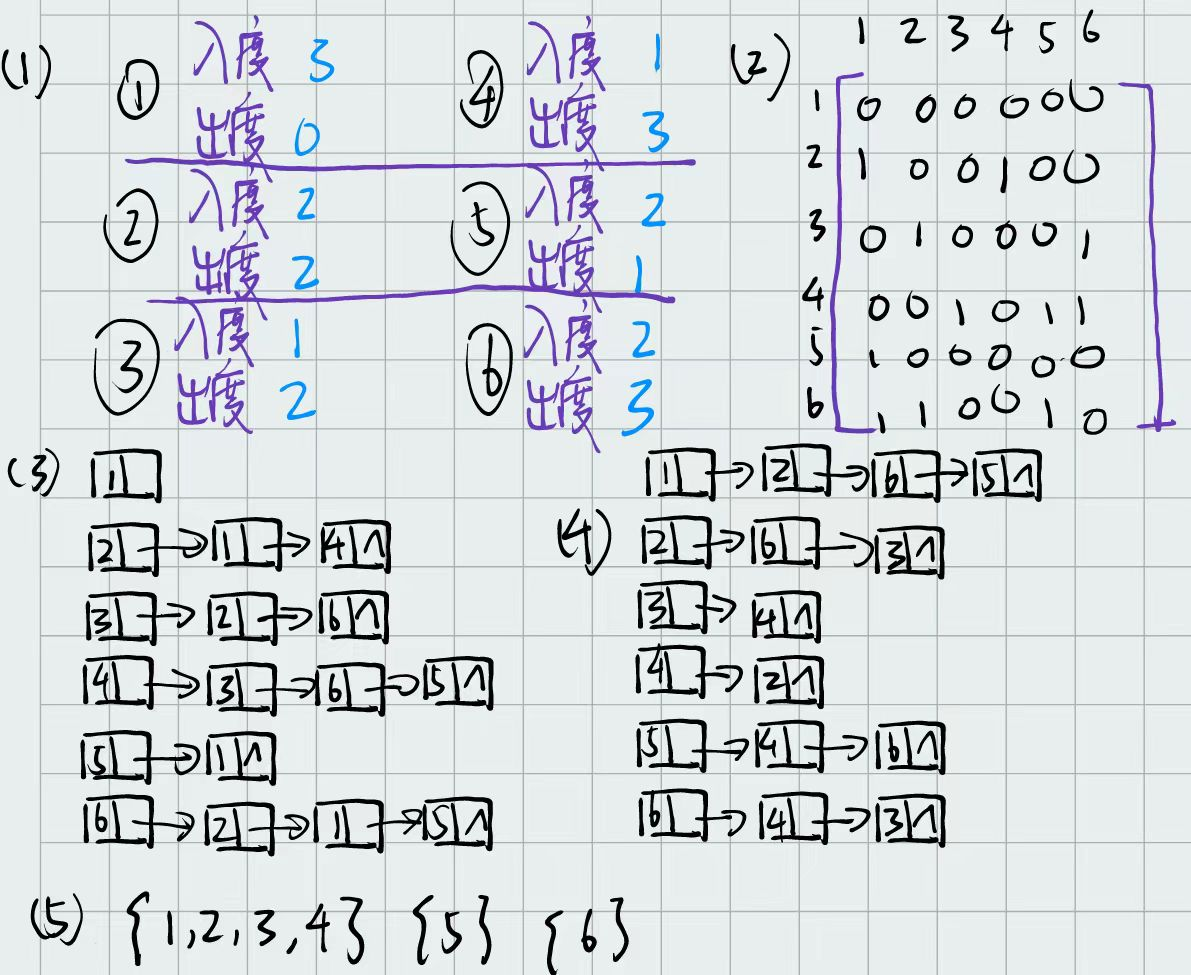 (1)
① 入度 3 ④ 入度 1
出度 0 出度 3
② 入度 2 ⑤ 入度 2
出度 2 出度 1
③ 入度 1 ⑥ 入度 2
出度 2 出度 3
(2)
1 2 3 4 5 6
1 0 0 0 0 0 0
2 1 0 0 1 0 0
3 0 1 0 0 0 1
4 0 0 1 0 1 1
5 1 0 0 0 0 0
6 1 1 0 0 1 0
(3)
1
2 → 1 → 4 ∧
3 → 2 → 6 ∧
4 → 3 → 6 → 5 ∧
5 → 1 ∧
6 → 2 → 1 → 5 ∧
(4)
1 → 2 → 6 → 5 ∧
2 → 6 → 3 ∧
3 → 4 ∧
4 → 2 ∧
5 → 4 → 6 ∧
6 → 4 → 3 ∧
(5) {1,2,3,4} {5} {6}